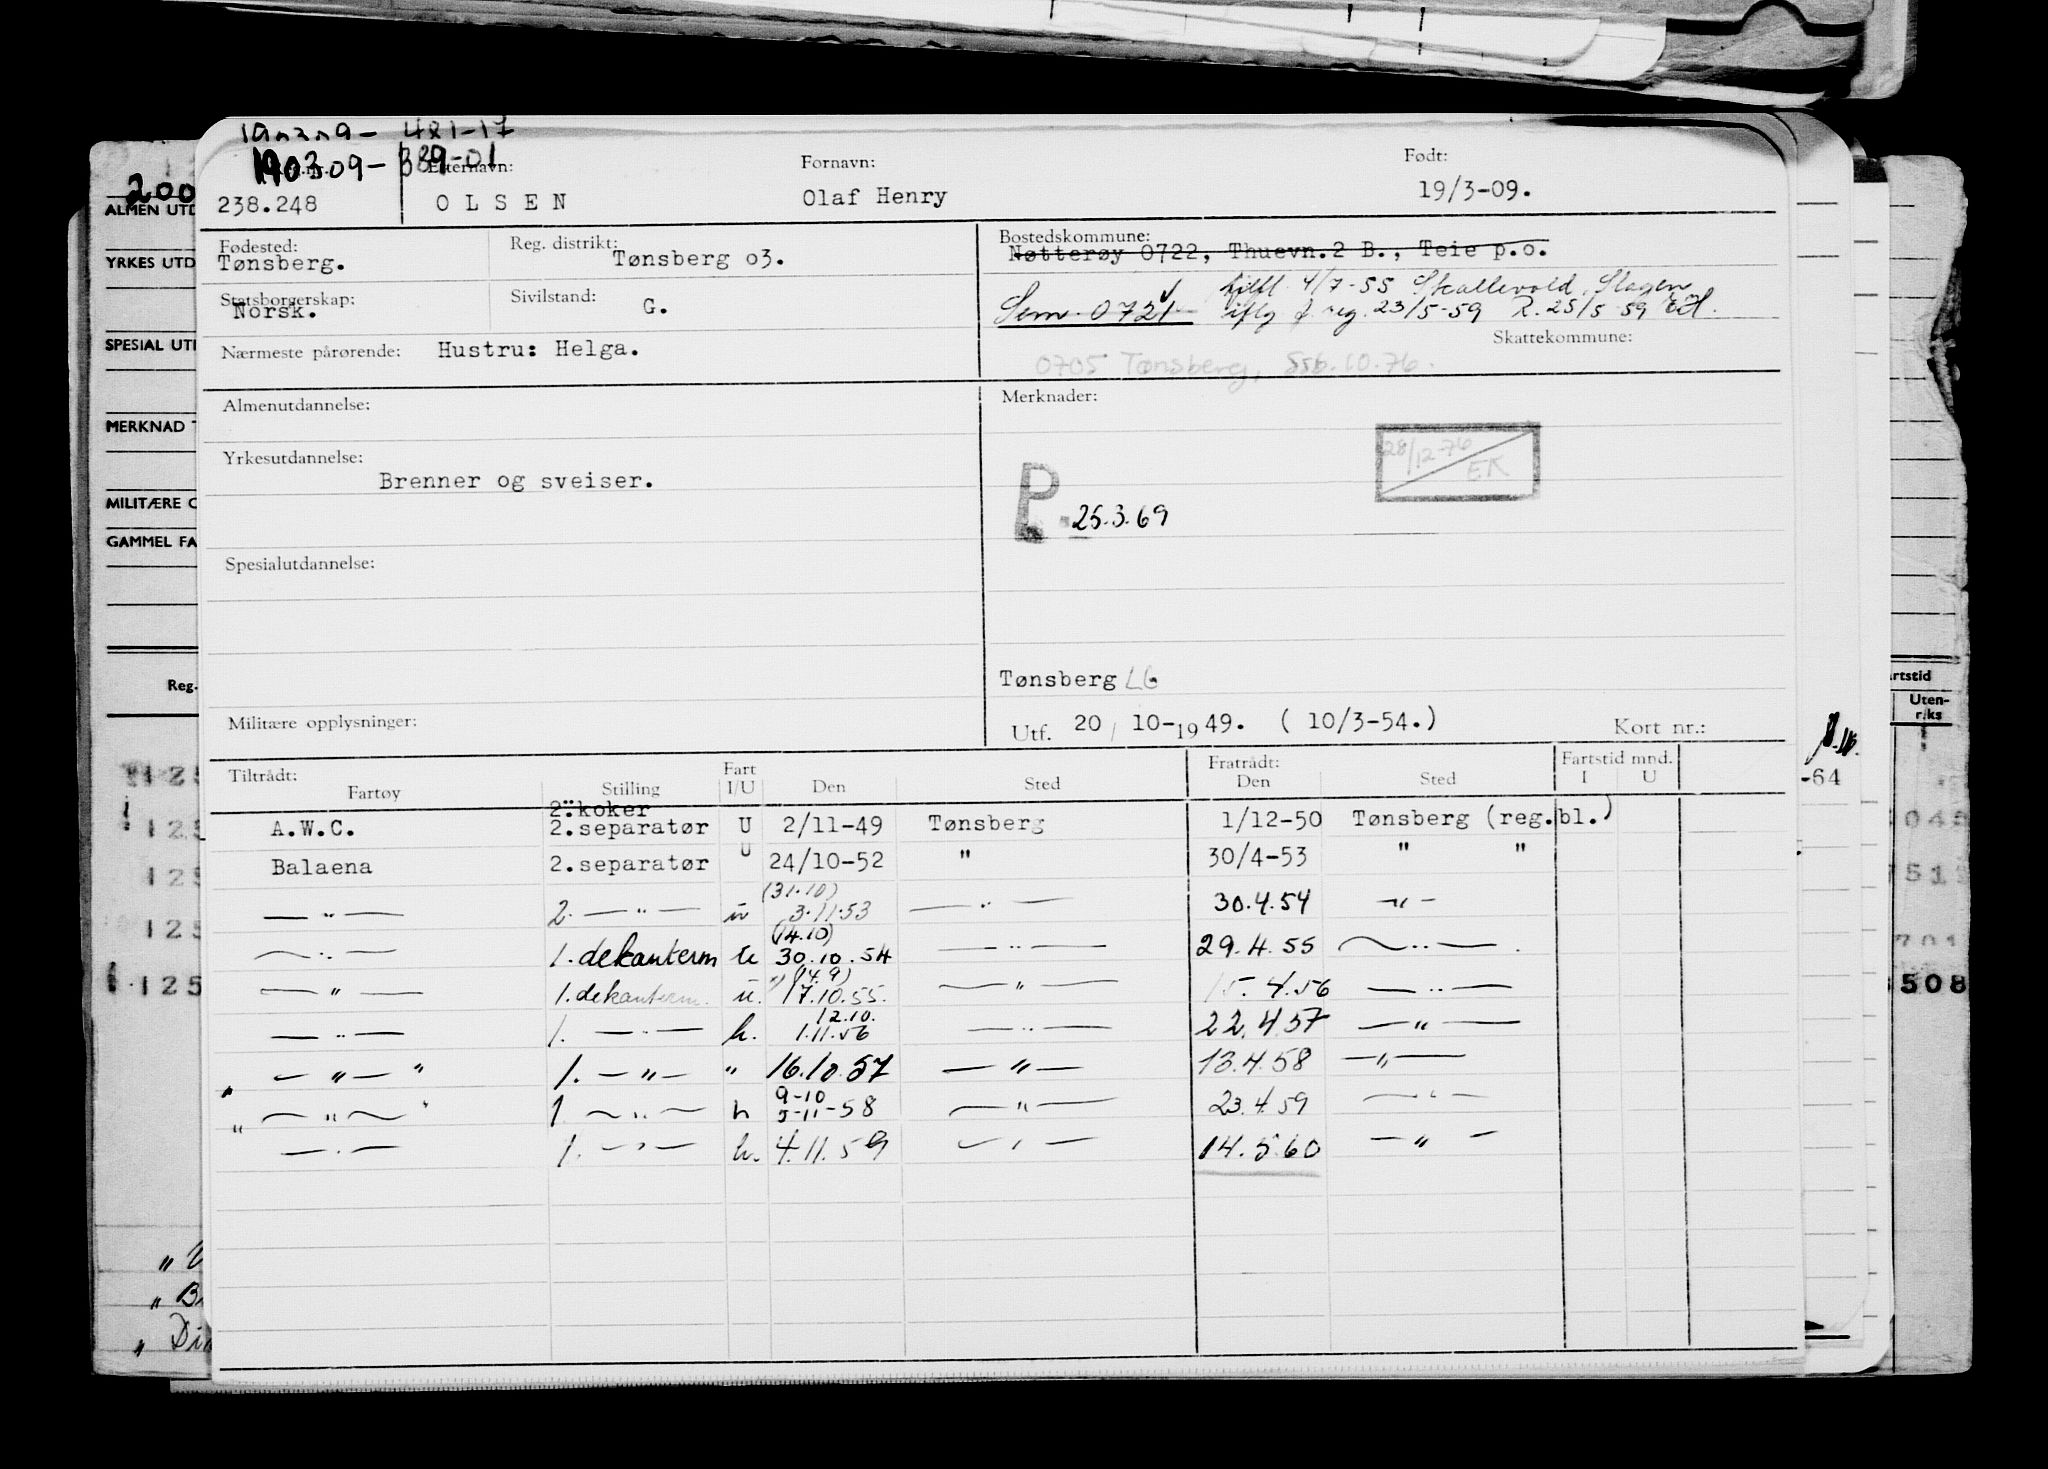 190309-
190309-
238.248
Etternavn:
OLSEN
Fornavn:
Olaf Henry
Født:
19/3-09.
Fødested:
Tønsberg.
Reg. distrikt:
Tønsberg o3.
Bostedskommune:
Nøtterøy 0722, Thuevn.2 B., Teie p.o.
Sem 0721
tilfl 4/7-55 Skallevold, Slagen
iflg f. reg. 23/5-59 R. 25/5-59
Statsborgerskap:
Norsk.
Sivilstand:
G.
Skattekommune:
0705 Tønsberg, Ssb.10.76.
Nærmeste pårørende: Hustru: Helga.
Almenutdannelse:
Merknader:
28/12-76 EK
Yrkesutdannelse:
Brenner og sveiser.
P. 25.3.69
Spesialutdannelse:
Tønsberg LG
Militære opplysninger:
Utf. 20/10-1949. (10/3-54.)
Kort nr.:
Tiltrådt: Fratrådt: Fartstid mnd.
Fartøy Stilling Fart I/U Den Sted Den Sted I U
2. koker
A.W.C. 2.separatør U 2/11-49 Tønsberg 1/12-50 Tønsberg (reg.bl.)
Balaena 2.separatør U 24/10-52 " 30/4-53 " "
(31.10)
— " — 2. — " — u 3.11.53 — " — 30.4.54 — " —
(14.10)
— " — 1. dekanterm u 30.10.54 — " — 29.4.55 — " —
(14.9)
— " — 1. dekanterm. u. 17.10.55. — " — 15.4.56 — " —
12.10.
— " — 1. — " — u. 1.11.56 — " — 22.4.57 — " —
" — " — " 1. — " — " 16.10.57 — " — 13.4.58 — " —
9-10
" — " — " 1. — " — u 5-11-58 — " — 23.4.59 — " —
— " — 1. — " — u. 4.11.59 — " — 14.5.60 — " —
200
ALMEN UTD
YRKES UTD
SPESIAL UTI
MERKNAD
MILITÆRE
GAMMEL FA
Reg.
125
125
125
125
125
" B
" Di
rtstid
Uten-
riks
-64
508